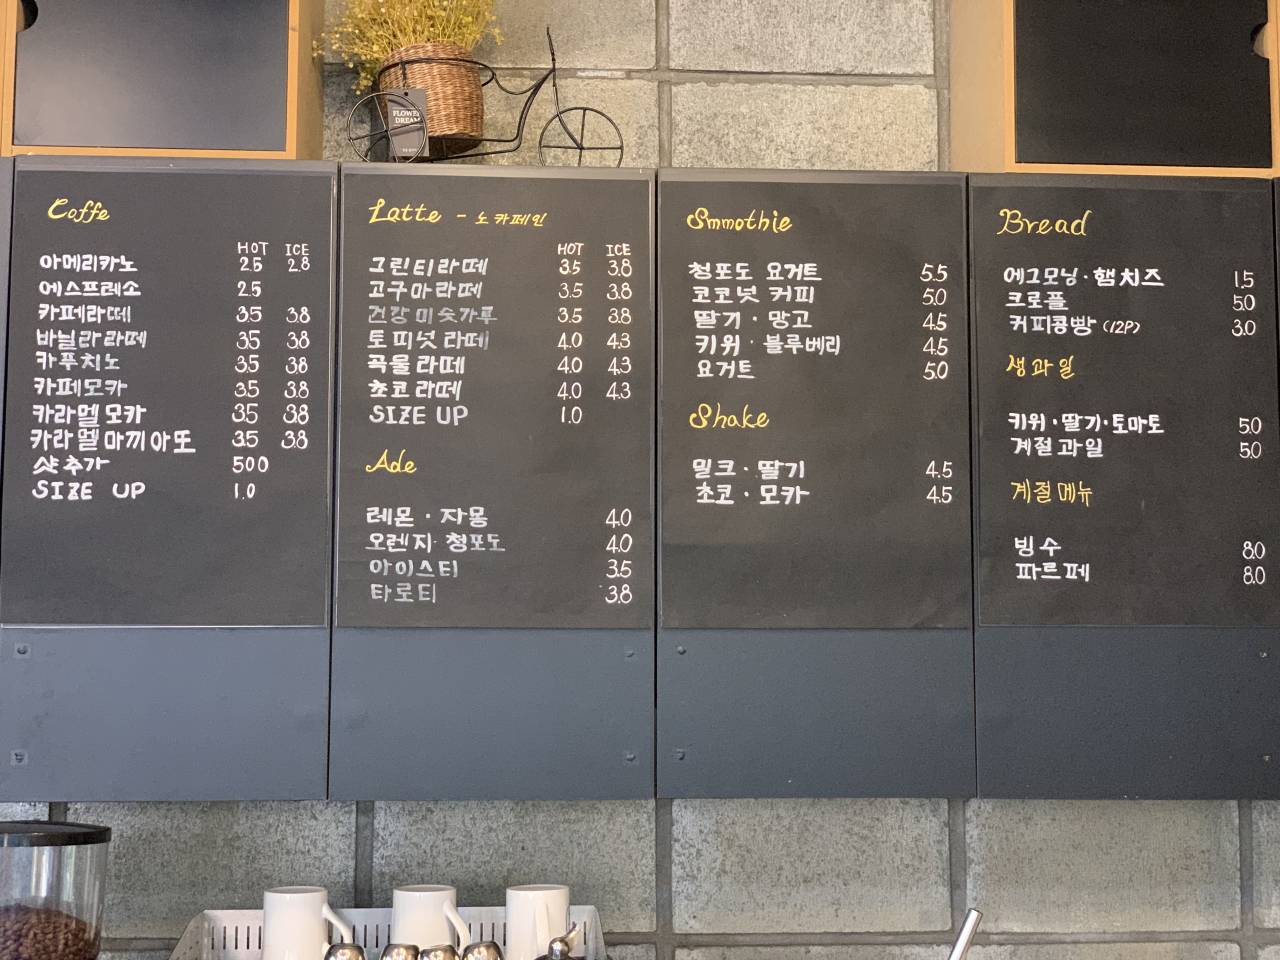 FLOWER
DREAM
Coffe
HOT ICE
아메리카노 2.5 2.8
에스프레소 2.5
카페라떼 3.5 3.8
바닐라라떼 3.5 3.8
카푸치노 3.5 3.8
카페모카 3.5 3.8
카라멜모카 3.5 3.8
카라멜마끼아또 3.5 3.8
샷추가 500
SIZE UP 1.0
Latte - 노카페인
HOT ICE
그린티라떼 3.5 3.8
고구마라떼 3.5 3.8
건강미숫가루 3.5 3.8
토피넛라떼 4.0 4.3
곡물라떼 4.0 4.3
쵸코라떼 4.0 4.3
SIZE UP 1.0
Ade
레몬·자몽 4.0
오렌지·청포도 4.0
아이스티 3.5
타로티 3.8
Smmothie
청포도 요거트 5.5
코코넛 커피 5.0
딸기·망고 4.5
키위·블루베리 4.5
요거트 5.0
Shake
밀크·딸기 4.5
초코·모카 4.5
Bread
에그모닝·햄치즈 1.5
크로플 5.0
커피콩빵 (12P) 3.0
생과일
키위·딸기·토마토 5.0
계절과일 5.0
계절메뉴
빙수 8.0
파르페 8.0